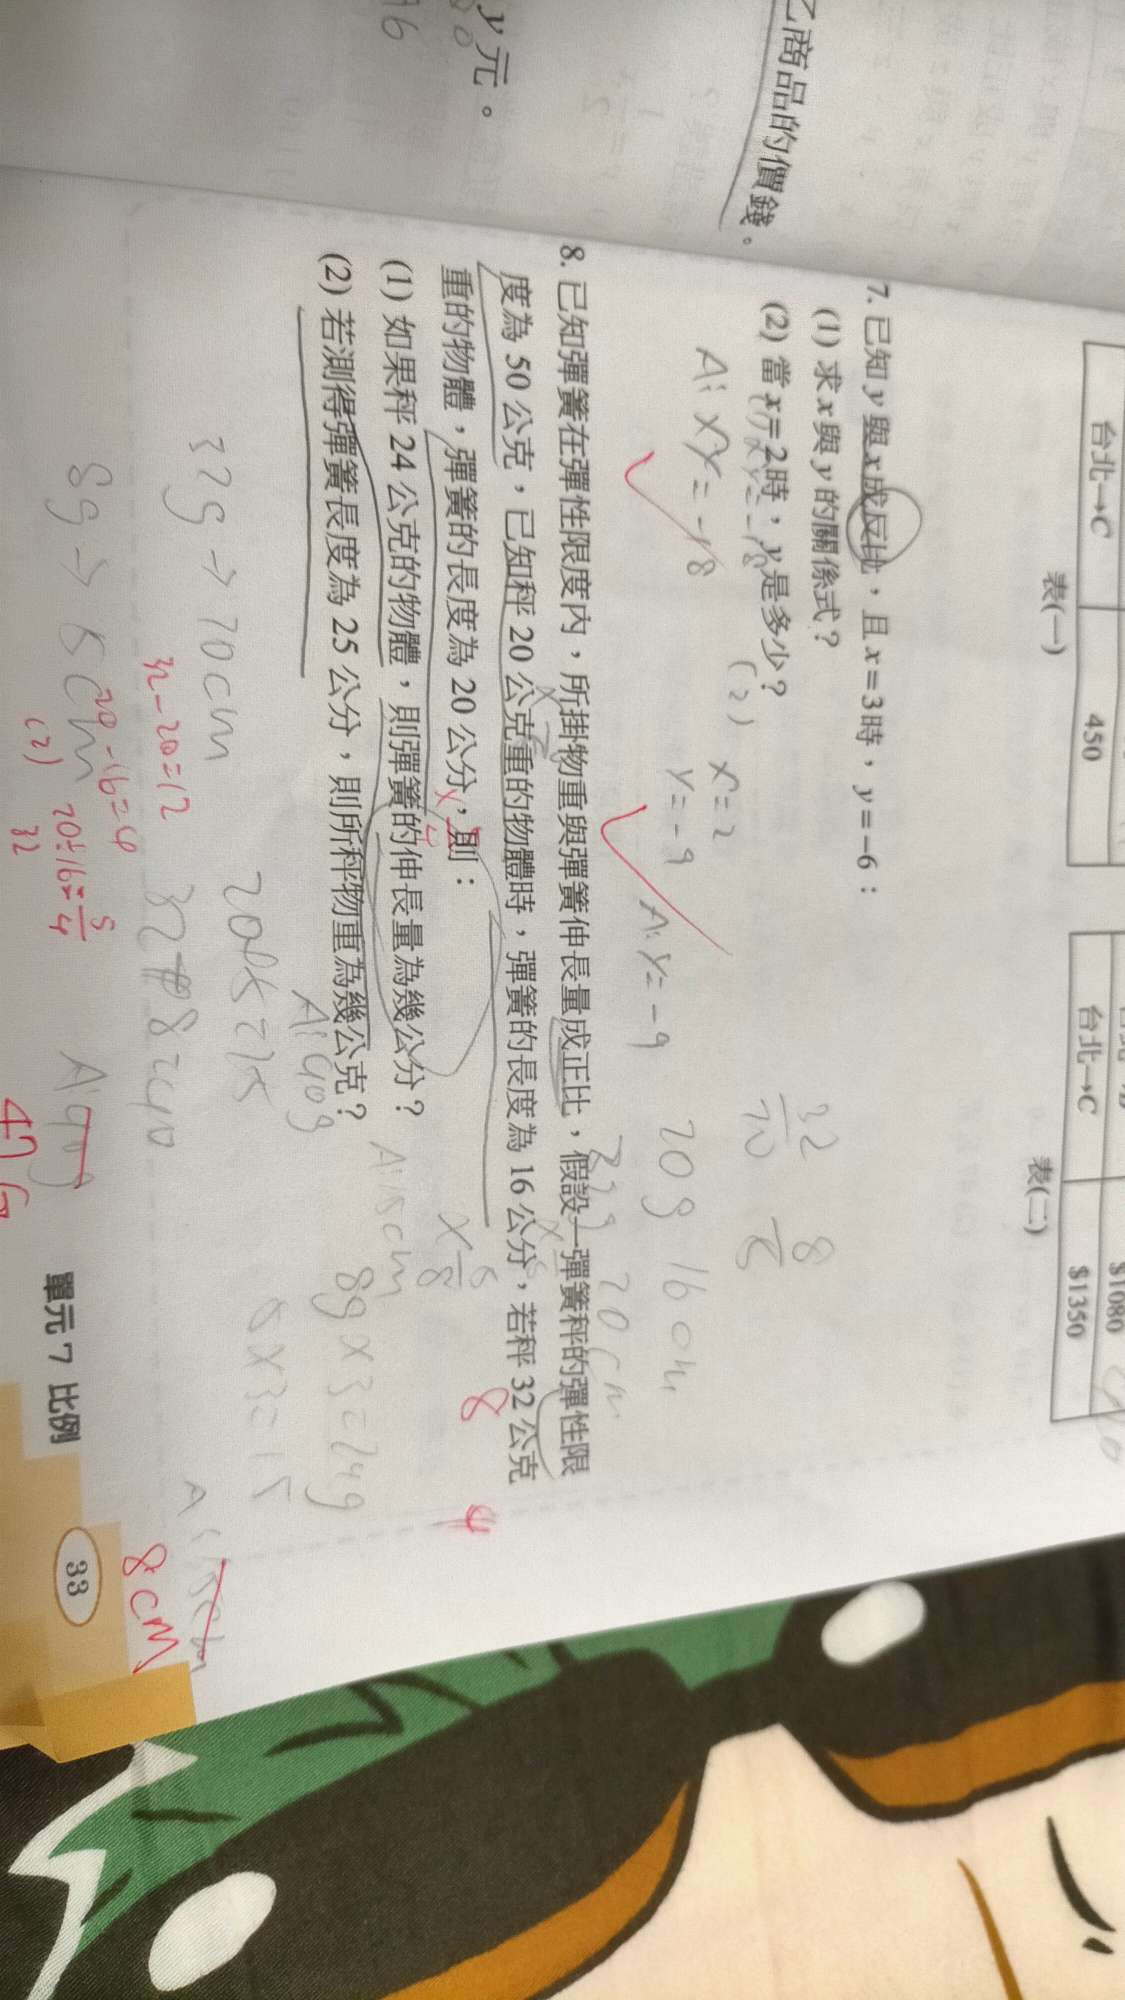 乙商品的價錢。
y元。
台北→C
450
表(一)
台北→C
$1080
$1350
表(二)
7. 已知y與x成反比，且x=3時，y=-6：
(1) 求x與y的關係式？
(2) 當x=2時，y是多少？
(1) xy=-18
A: xy=-18
(2) x=2
y=-9
A: y=-9
8. 已知彈簧在彈性限度內，所掛物重與彈簧伸長量成正比，假設一彈簧秤的彈性限
度為 50 公克，已知秤 20 公克重的物體時，彈簧的長度為 16 公分，若秤 32 公克
重的物體，彈簧的長度為 20 公分，則：
(1) 如果秤 24 公克的物體，則彈簧的伸長量為幾公分？
(2) 若測得彈簧長度為 25 公分，則所秤物重為幾公克？
20g 16cm
32g 20cm
A: 15cm
8g×3=24g
5×3=15
A: 40g
32g→20cm
8g→5cm
32-20=12
20-16=4
20÷16=5/4
32+8=40
(2)
32
47g
8cm
單元 7 比例
33